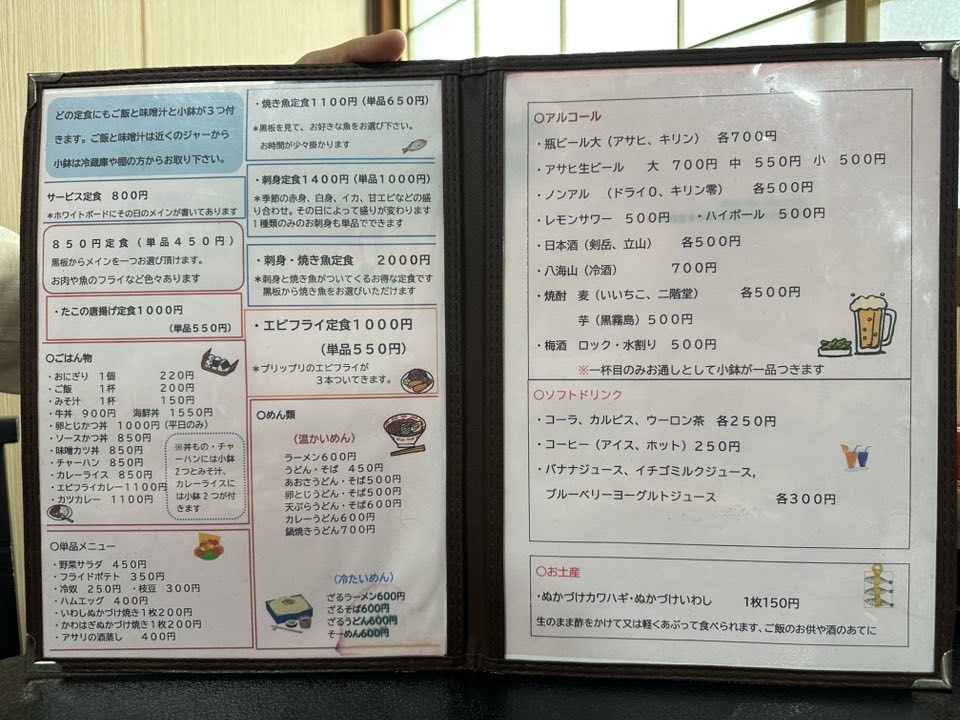 どの定食にもご飯と味噌汁と小鉢が３つ付
きます。ご飯と味噌汁は近くのジャーから
小鉢は冷蔵庫や棚の方からお取り下さい。
サービス定食 800円
＊ホワイトボードにその日のメインが書いてあります
８５０円定食（単品４５０円）
黒板からメインを一つお選び頂けます。
お肉や魚のフライなど色々あります
・たこの唐揚げ定食1000円
（単品550円）
〇ごはん物
・おにぎり 1個 220円
・ご飯 1杯 200円
・みそ汁 1杯 150円
・牛丼 900円 海鮮丼 1550円
・卵とじかつ丼 1000円（平日のみ）
・ソースかつ丼 850円
・味噌カツ丼 850円
・チャーハン 850円
・カレーライス 850円
・エビフライカレー1100円
・カツカレー 1100円
※丼もの・チャ
ーハンには小鉢
2つとみそ汁、
カレーライスに
は小鉢2つが付
きます
〇単品メニュー
・野菜サラダ 450円
・フライドポテト 350円
・冷奴 250円 ・枝豆 300円
・ハムエッグ 400円
・いわしぬかづけ焼き1枚200円
・かわはぎぬかづけ焼き1枚200円
・アサリの酒蒸し 400円
・焼き魚定食1100円（単品650円）
＊黒板を見て、お好きな魚をお選び下さい。
お時間が少々掛かります
・刺身定食1400円（単品1000円）
＊季節の赤身、白身、イカ、甘エビなどの盛
り合わせ。その日によって盛りが変わります
1種類のみのお刺身も単品でできます
・刺身・焼き魚定食 2000円
＊刺身と焼き魚がついてくるお得な定食です
黒板から焼き魚をお選びいただけます
・エビフライ定食1000円
（単品550円）
＊プリップリのエビフライが
３本ついてきます。
〇めん類
（温かいめん）
ラーメン600円
うどん・そば 450円
あおさうどん・そば500円
卵とじうどん・そば500円
天ぷらうどん・そば600円
カレーうどん600円
鍋焼きうどん700円
（冷たいめん）
ざるラーメン600円
ざるそば600円
ざるうどん600円
そーめん600円
〇アルコール
・瓶ビール大（アサヒ、キリン） 各700円
・アサヒ生ビール 大 700円 中 550円 小 500円
・ノンアル （ドライ０、キリン零） 各500円
・レモンサワー 500円 ・ハイボール 500円
・日本酒（剣岳、立山） 各500円
・八海山（冷酒） 700円
・焼酎 麦（いいちこ、二階堂） 各500円
芋（黒霧島）500円
・梅酒 ロック・水割り 500円
※一杯目のみお通しとして小鉢が一品つきます
〇ソフトドリンク
・コーラ、カルピス、ウーロン茶 各250円
・コーヒー（アイス、ホット）250円
・バナナジュース、イチゴミルクジュース，
ブルーベリーヨーグルトジュース 各300円
〇お土産
・ぬかづけカワハギ・ぬかづけいわし 1枚150円
生のまま酢をかけて又は軽くあぶって食べられます、ご飯のお供や酒のあてに